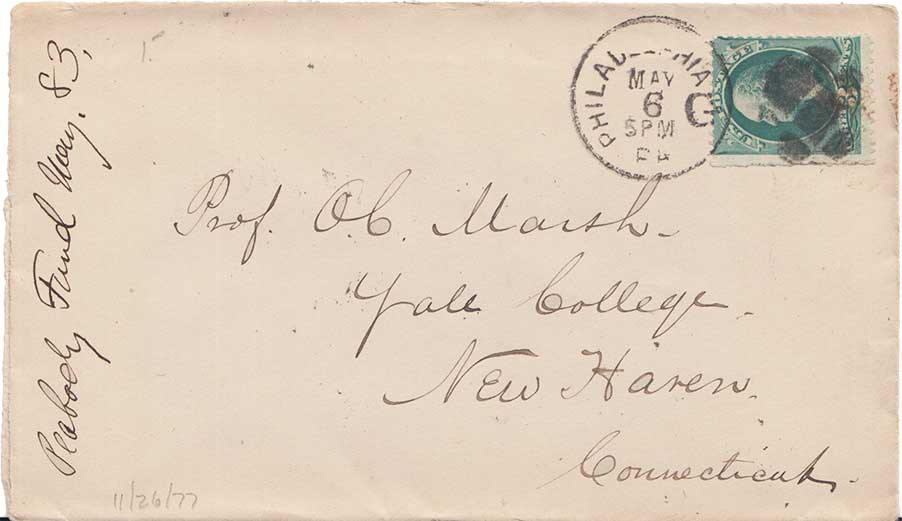 PHILADELPHIA
MAY
6
5PM
PA
C
POSTAGE
Prof. O.C. Marsh
Yale College
New Haven
Connecticut
Peabody Fund May. 83.
11/26/77